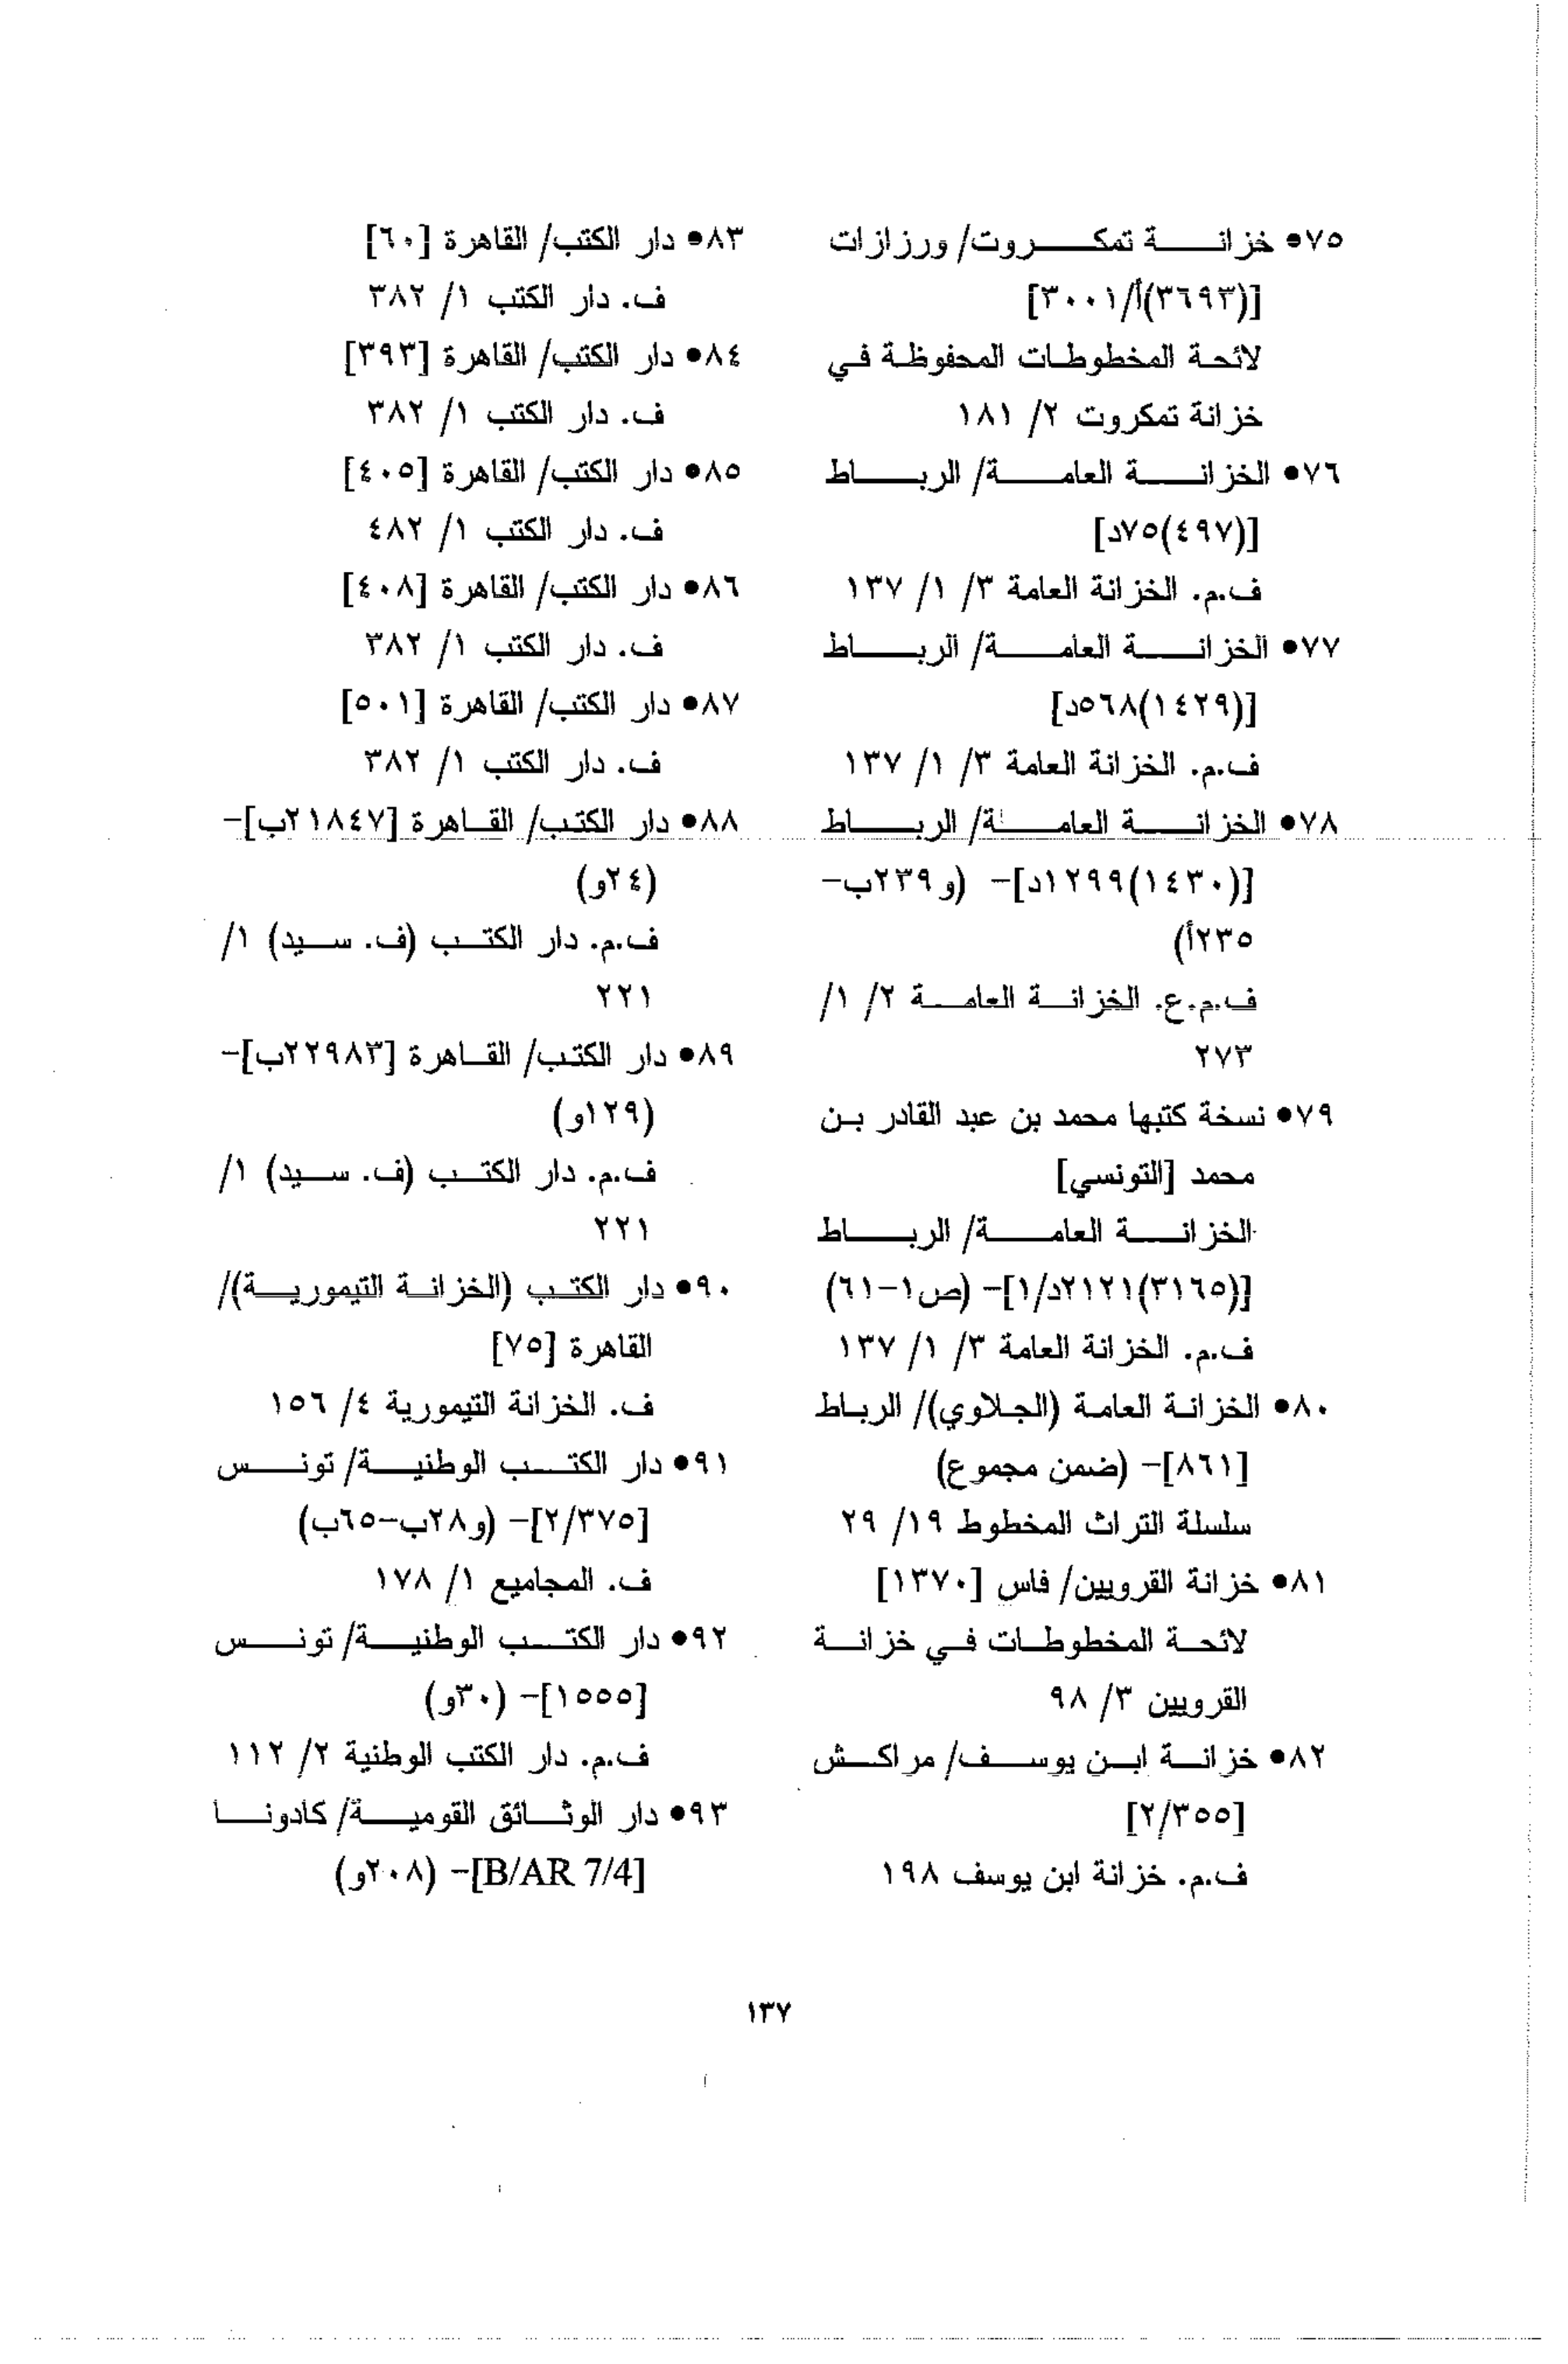 ٧٥• خزانة تمكروت/ ورزازات
[(٣٦٩٣)أ/٣٠٠١]
لائحة المخطوطات المحفوظة في
خزانة تمكروت ٢/ ١٨١
٧٦• الخزانة العامة/ الرباط
[(٤٩٧)٧٥د]
ف.م. الخزانة العامة ٣/ ١/ ١٣٧
٧٧• الخزانة العامة/ الرباط
[(١٤٢٩)٥٦٨د]
ف.م. الخزانة العامة ٣/ ١/ ١٣٧
٧٨• الخزانة العامة/ الرباط
[(١٤٣٠)١٢٩٩د]– (و٢٣٩ب–
٢٣٥أ)
ف.م.ع. الخزانة العامة ٢/ ١/
٢٧٣
٧٩• نسخة كتبها محمد بن عبد القادر بن
محمد [التونسي]
الخزانة العامة/ الرباط
[(٣١٦٥)٢١٢١د/١]– (ص١–٦١)
ف.م. الخزانة العامة ٣/ ١/ ١٣٧
٨٠• الخزانة العامة (الجلاوي)/ الرباط
[٨٦١]– (ضمن مجموع)
سلسلة التراث المخطوط ١٩/ ٢٩
٨١• خزانة القرويين/ فاس [١٣٧٠]
لائحة المخطوطات في خزانة
القرويين ٣/ ٩٨
٨٢• خزانة ابن يوسف/ مراكش
[٢/٣٥٥]
ف.م. خزانة ابن يوسف ١٩٨
٨٣• دار الكتب/ القاهرة [٦٠]
ف. دار الكتب ١/ ٣٨٢
٨٤• دار الكتب/ القاهرة [٣٩٣]
ف. دار الكتب ١/ ٣٨٢
٨٥• دار الكتب/ القاهرة [٤٠٥]
ف. دار الكتب ١/ ٤٨٢
٨٦• دار الكتب/ القاهرة [٤٠٨]
ف. دار الكتب ١/ ٣٨٢
٨٧• دار الكتب/ القاهرة [٥٠١]
ف. دار الكتب ١/ ٣٨٢
٨٨• دار الكتب/ القاهرة [٢١٨٤٧ب]–
(٢٤و)
ف.م. دار الكتب (ف. سيد) ١/
٢٢١
٨٩• دار الكتب/ القاهرة [٢٢٩٨٣ب]–
(١٢٩و)
ف.م. دار الكتب (ف. سيد) ١/
٢٢١
٩٠• دار الكتب (الخزانة التيمورية)/
القاهرة [٧٥]
ف. الخزانة التيمورية ٤/ ١٥٦
٩١• دار الكتب الوطنية/ تونس
[٢/٣٧٥]– (و٢٨ب–٦٥ب)
ف. المجاميع ١/ ١٧٨
٩٢• دار الكتب الوطنية/ تونس
[١٥٥٥]– (٣٠و)
ف.م. دار الكتب الوطنية ٢/ ١١٢
٩٣• دار الوثائق القومية/ كادونا
[B/AR 7/4]– (٢٠٨و)
١٣٧